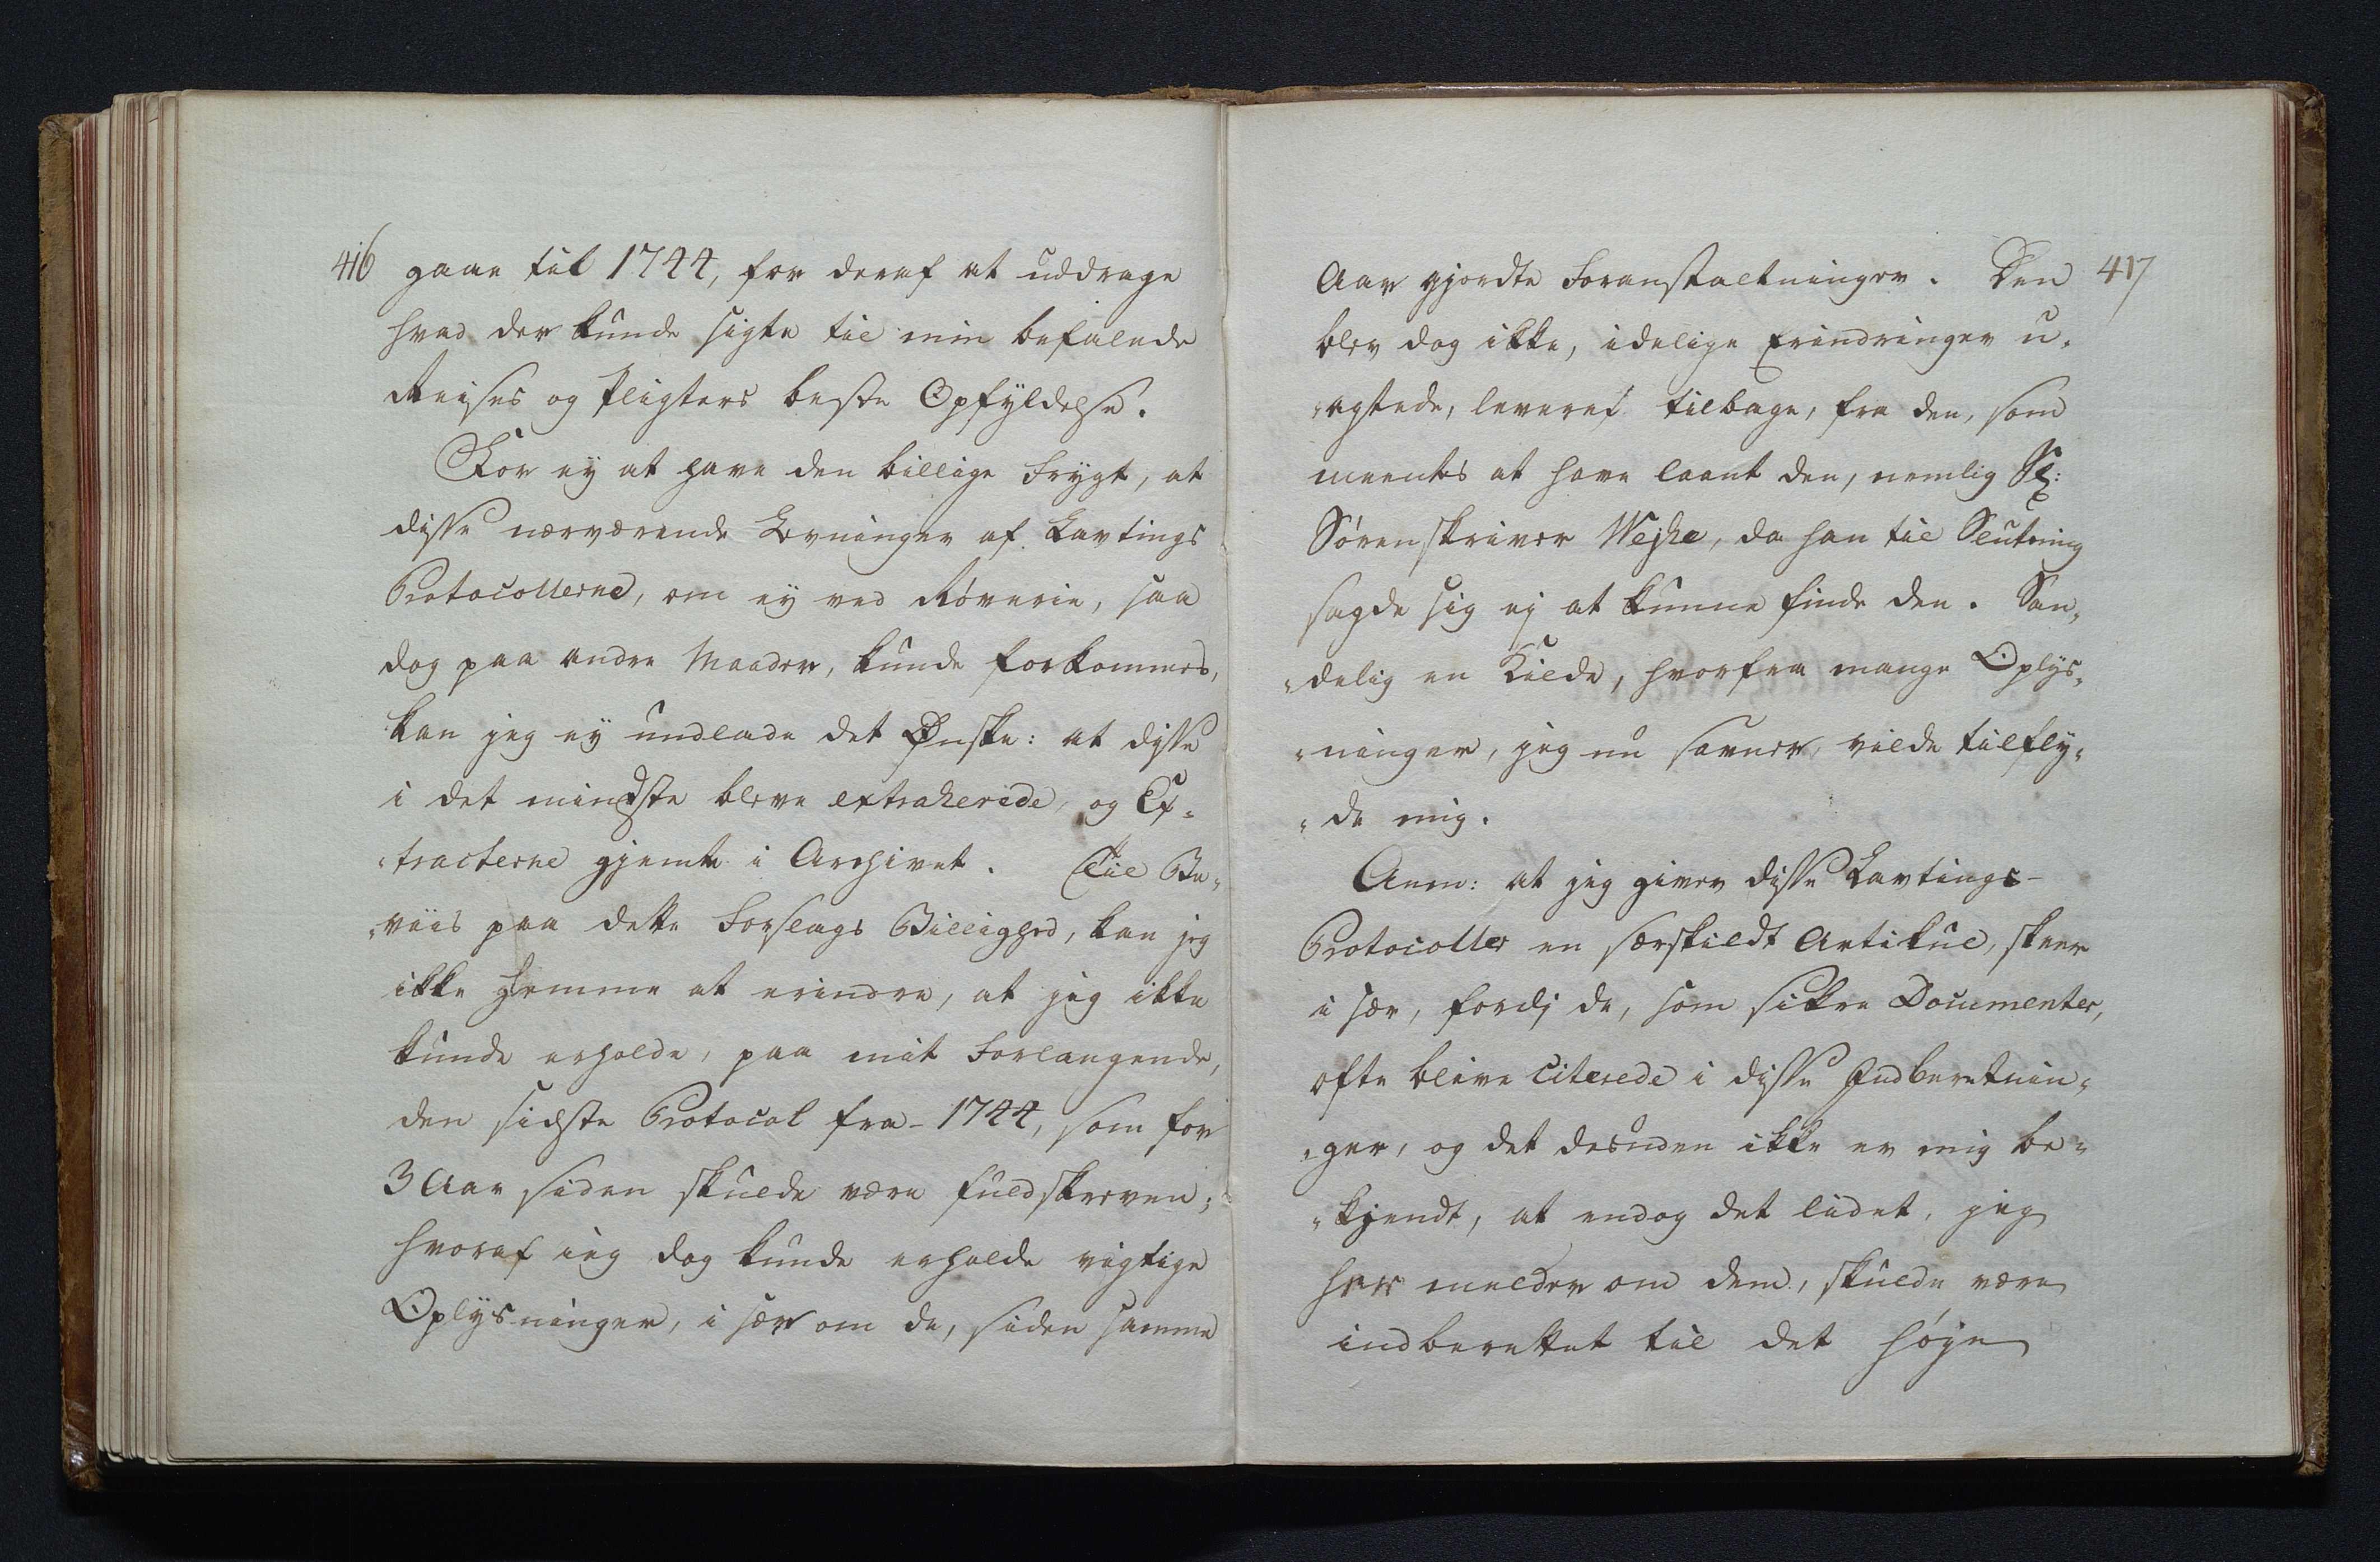 416
gaae til 1744, for deraf at uddrage
hvad der kunde sigte til min befalede
Reises og Pligters beste Opfyldelse.
For ey at have den billige Frygt, at
disse nærværende Levninger af Lavtings
Protocollerne, om ey ved Røverie, saa
dog paa andre Maader, kunde forkommes,
kan jeg ey undlade det Ønske: at disse
i det mindste bleve extraherede, og Ex-
-tracterne gjemte i Archivet. Til Be-
-viis paa dette Forslags Billighed, kan jeg
ikke gjemme at erindre, at jeg ikke
kunde erholde, paa mit Forlangende,
den sidste Protocol fra 1744, som for
3 Aar siden skulde være fuldskreven;
hvoraf jeg dog kunde erholde vigtige
Oplysninger, i sær om de, siden samme
417
Aar gjordte Foranstaltninger. Den
blev dog ikke, idelige Erindringer u-
-agtede, leveret tilbage, fra den, som
meentes at have laant den, nemlig Sl:
Sorenskriver Wejhe, da han til Slutning
sagde sig ej at kunne finde den. San-
-delig en Kilde, hvorfra mange Oplys-
-ninger, jeg nu savner, vilde tilfly-
-de mig.
Anm: at jeg giver disse Lavtings-
Protocoller en særskildt Artikul, skeer
i sær, fordj de, som sikre Documenter,
ofte blive citerede i disse Indberetnin-
-ger, og det desuden ikke er mig be-
-kjendt, at endog det lidet, jeg
her melder om dem, skulde være
indberettet til det høje